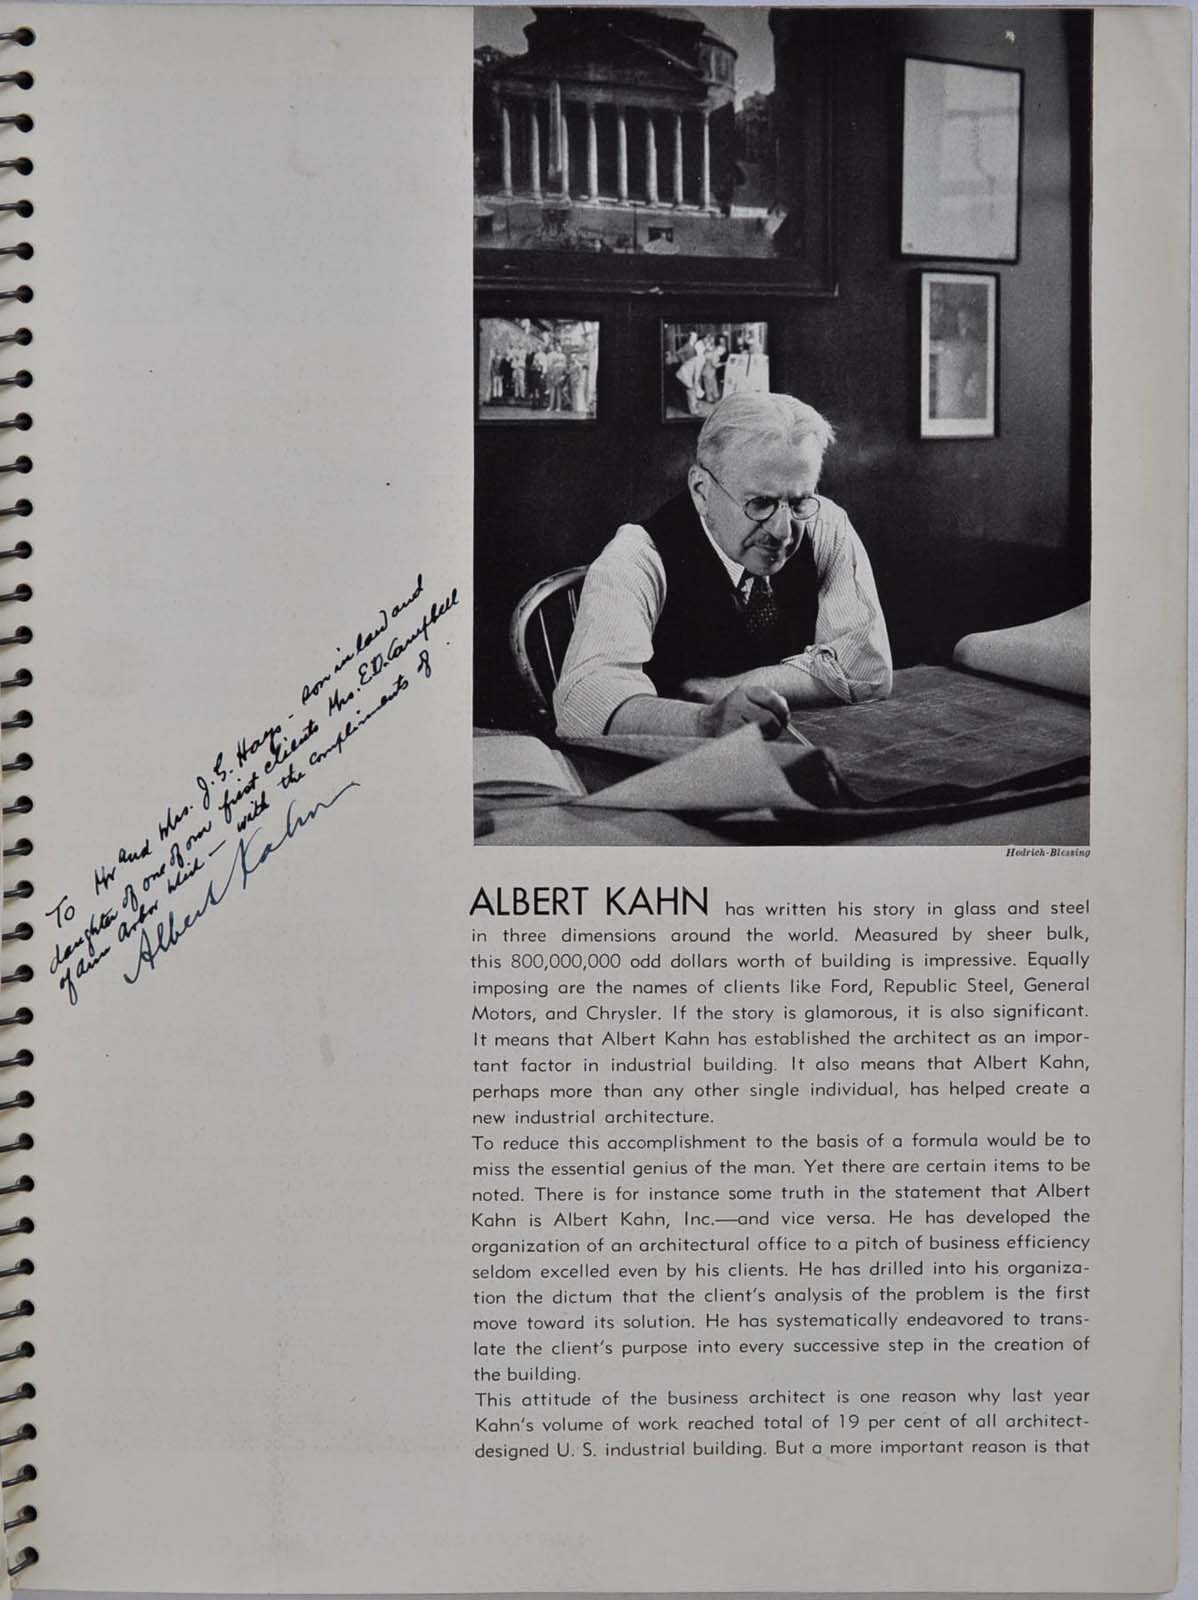 To Mr and Mrs. J. G. Hays - son in law and
daughter of one of our first clients Mrs. E.D. Campbell
of Ann Arbor Mich - with the compliments of
Albert Kahn
Hedrich-Blessing
ALBERT KAHN has written his story in glass and steel
in three dimensions around the world. Measured by sheer bulk,
this 800,000,000 odd dollars worth of building is impressive. Equally
imposing are the names of clients like Ford, Republic Steel, General
Motors, and Chrysler. If the story is glamorous, it is also significant.
It means that Albert Kahn has established the architect as an impor-
tant factor in industrial building. It also means that Albert Kahn,
perhaps more than any other single individual, has helped create a
new industrial architecture.
To reduce this accomplishment to the basis of a formula would be to
miss the essential genius of the man. Yet there are certain items to be
noted. There is for instance some truth in the statement that Albert
Kahn is Albert Kahn, Inc.—and vice versa. He has developed the
organization of an architectural office to a pitch of business efficiency
seldom excelled even by his clients. He has drilled into his organiza-
tion the dictum that the client's analysis of the problem is the first
move toward its solution. He has systematically endeavored to trans-
late the client's purpose into every successive step in the creation of
the building.
This attitude of the business architect is one reason why last year
Kahn's volume of work reached total of 19 per cent of all architect-
designed U. S. industrial building. But a more important reason is that